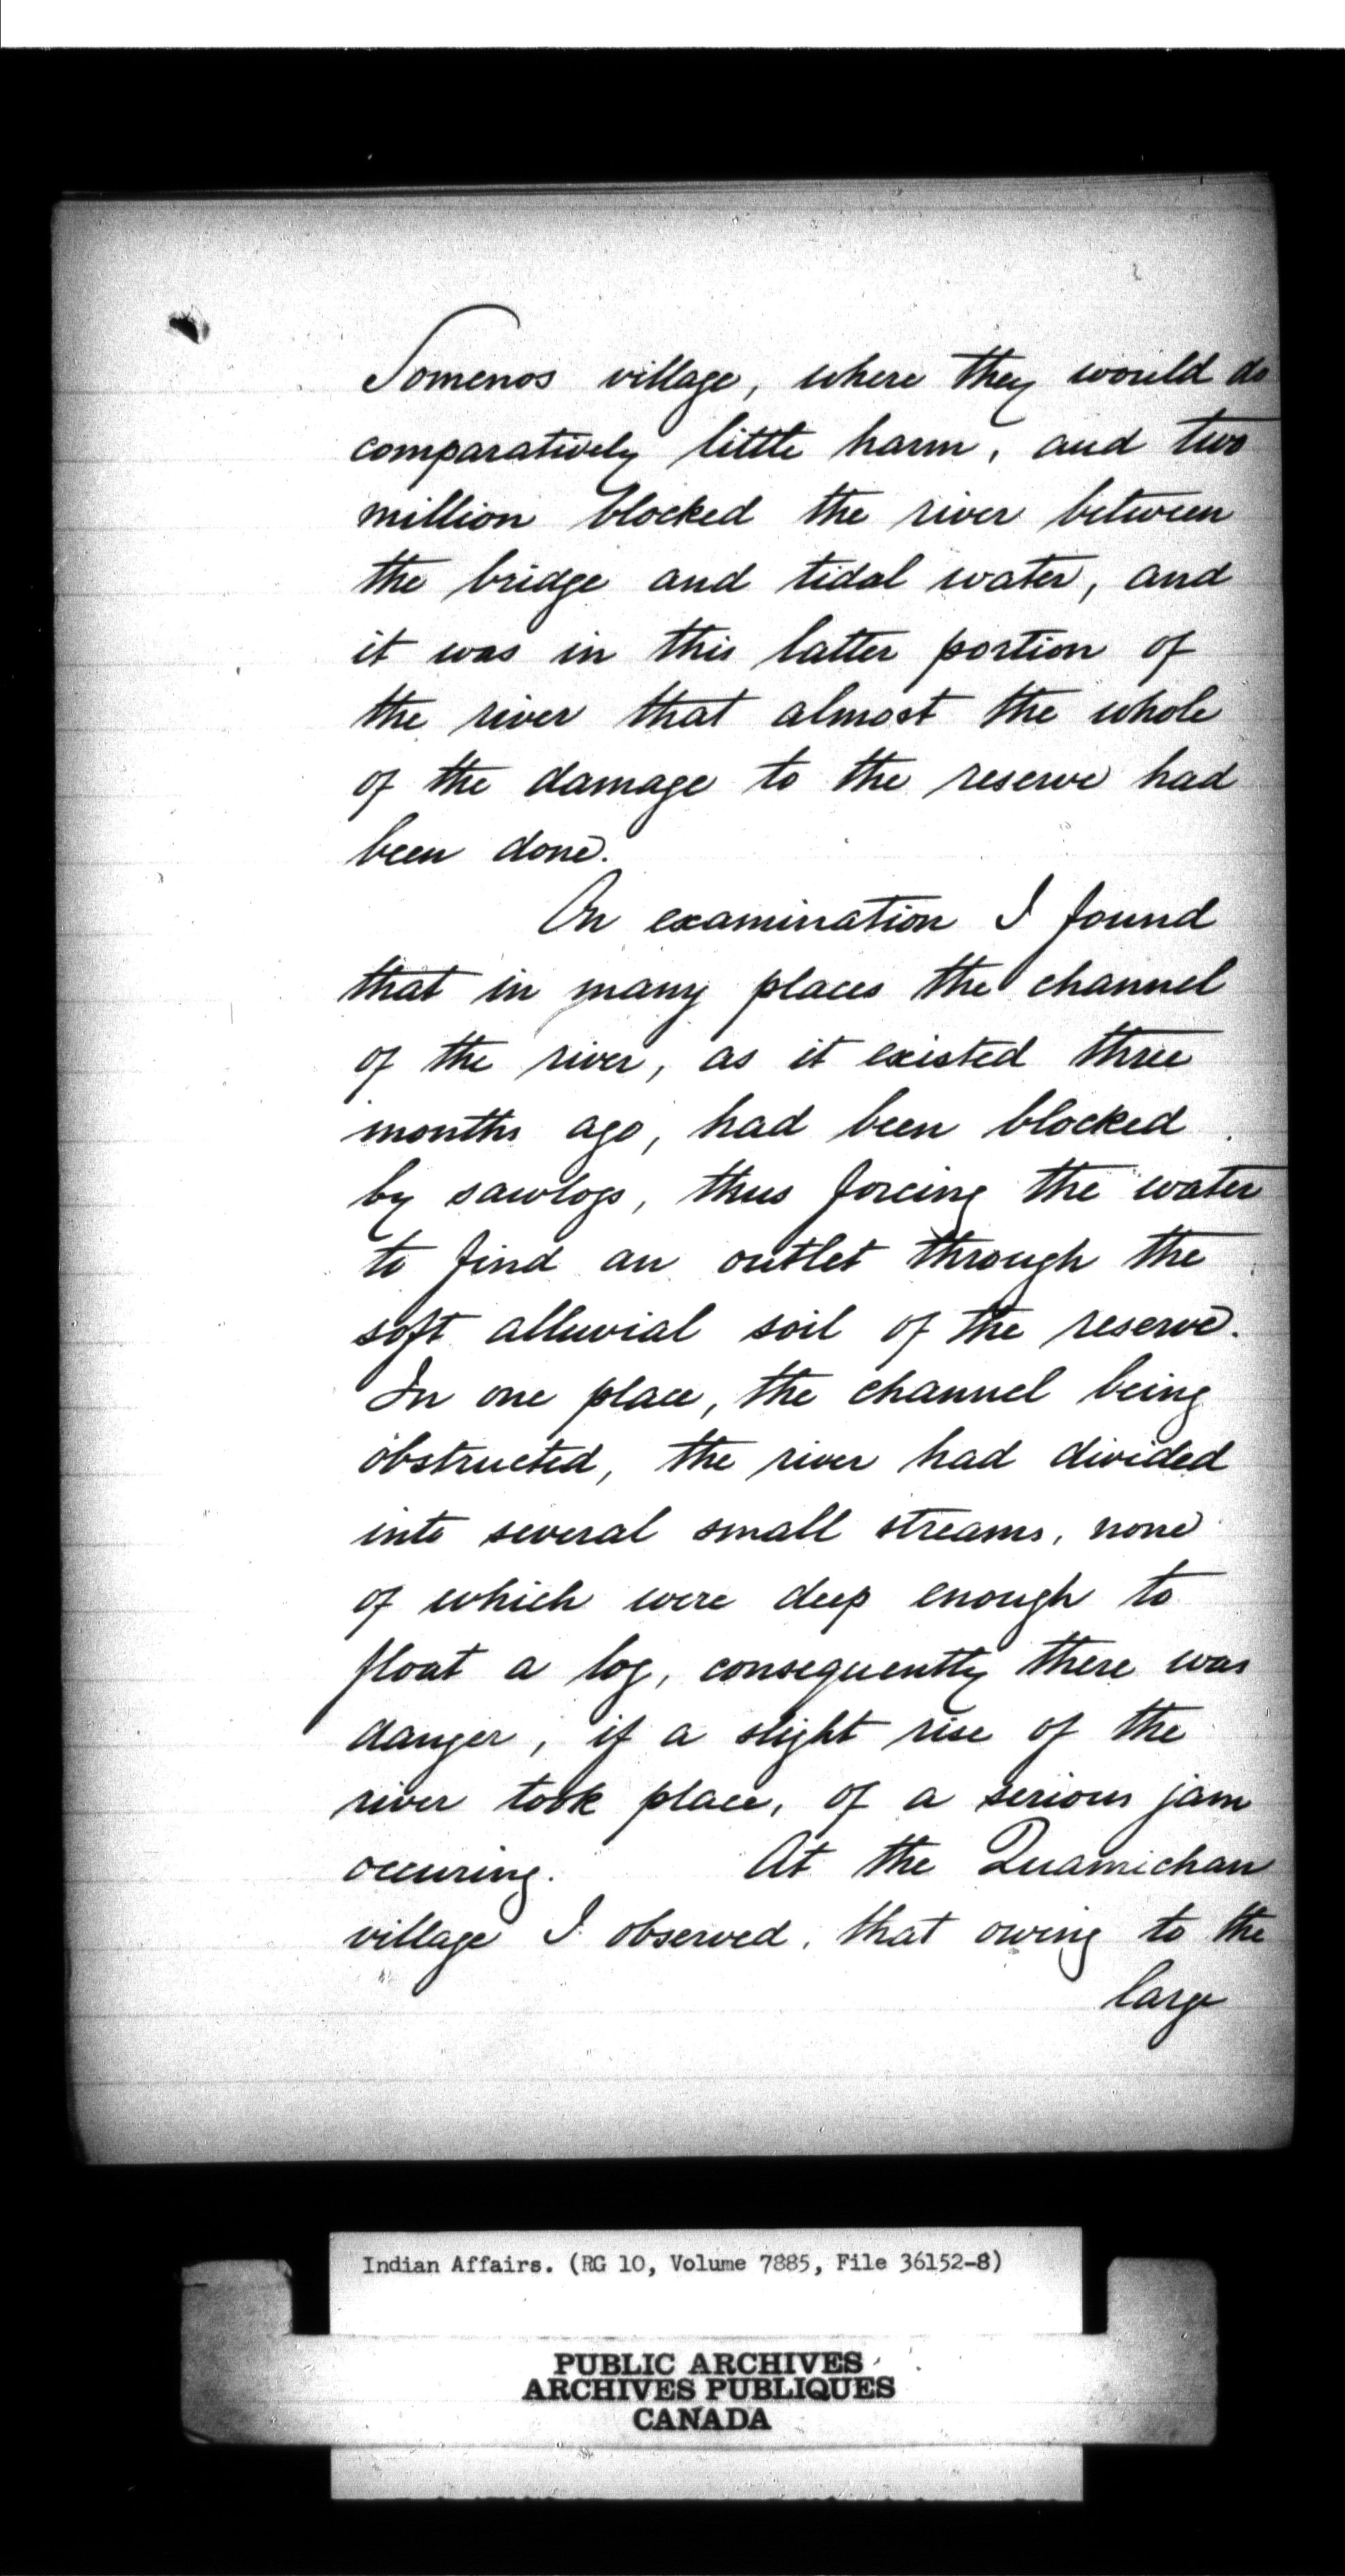 Somenos village, where they would do
comparatively little harm, and two
million blocked the river between
the bridge and tidal water, and
it was in this latter portion of
the river that almost the whole
of the damage to the reserve had
been done.
On examination I found
that in many places the channel
of the river, as it existed three
months ago, had been blocked
by sawlogs, thus forcing the water
to find an outlet through the
soft alluvial soil of the reserve.
In one place, the channel being
obstructed, the river had divided
into several small streams, none
of which were deep enough to
float a log, consequently there was
danger, if a slight rise of the
river took place, of a serious jam
occuring. At the Quamichan
village I observed, that owing to the
large
Indian Affairs. (RG 10, Volume 7885, File 36152-8)
PUBLIC ARCHIVES
ARCHIVES PUBLIQUES
CANADA